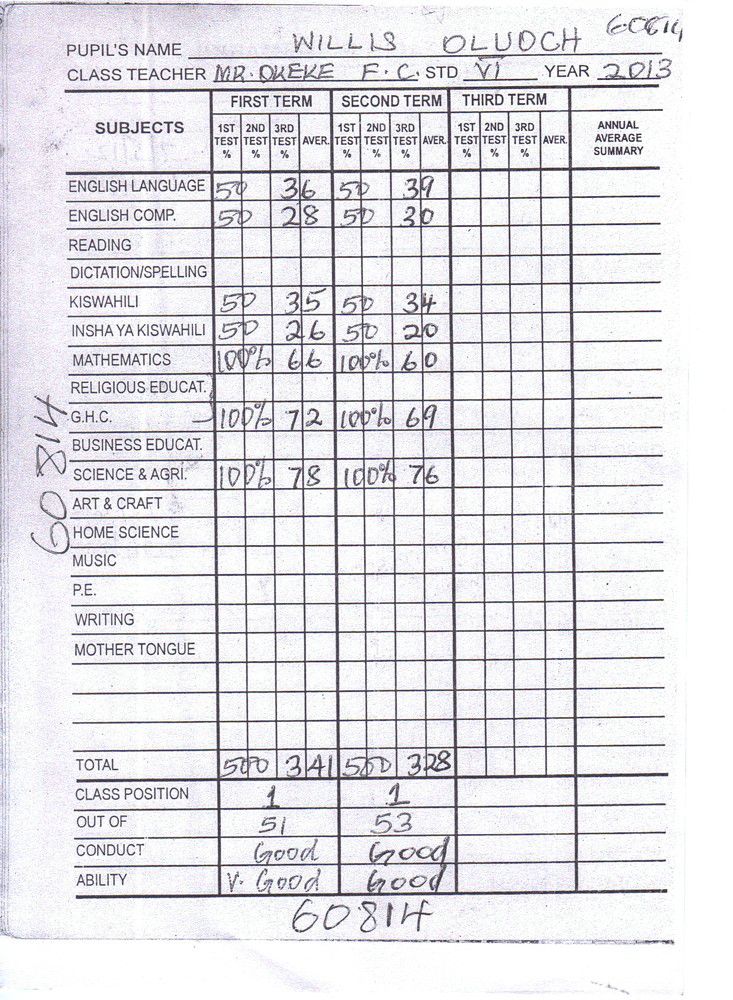 60814
PUPIL'S NAME WILLIS OLUOCH
CLASS TEACHER MR. OKEKE F.C. STD VI YEAR 2013
SUBJECTS FIRST TERM SECOND TERM THIRD TERM ANNUAL AVERAGE SUMMARY
1ST TEST % 2ND TEST % 3RD TEST % AVER. 1ST TEST % 2ND TEST % 3RD TEST % AVER. 1ST TEST % 2ND TEST % 3RD TEST % AVER.
ENGLISH LANGUAGE 50 36 50 39
ENGLISH COMP. 50 28 50 30
READING
DICTATION/SPELLING
KISWAHILI 50 35 50 34
INSHA YA KISWAHILI 50 26 50 20
MATHEMATICS 100% 66 100% 60
RELIGIOUS EDUCAT.
G.H.C. 100% 72 100% 69
BUSINESS EDUCAT.
SCIENCE & AGRI. 100% 78 100% 76
ART & CRAFT
HOME SCIENCE
MUSIC
P.E.
WRITING
MOTHER TONGUE
TOTAL 500 341 500 328
CLASS POSITION 1 1
OUT OF 51 53
CONDUCT Good Good
ABILITY V. Good Good
60814
60814